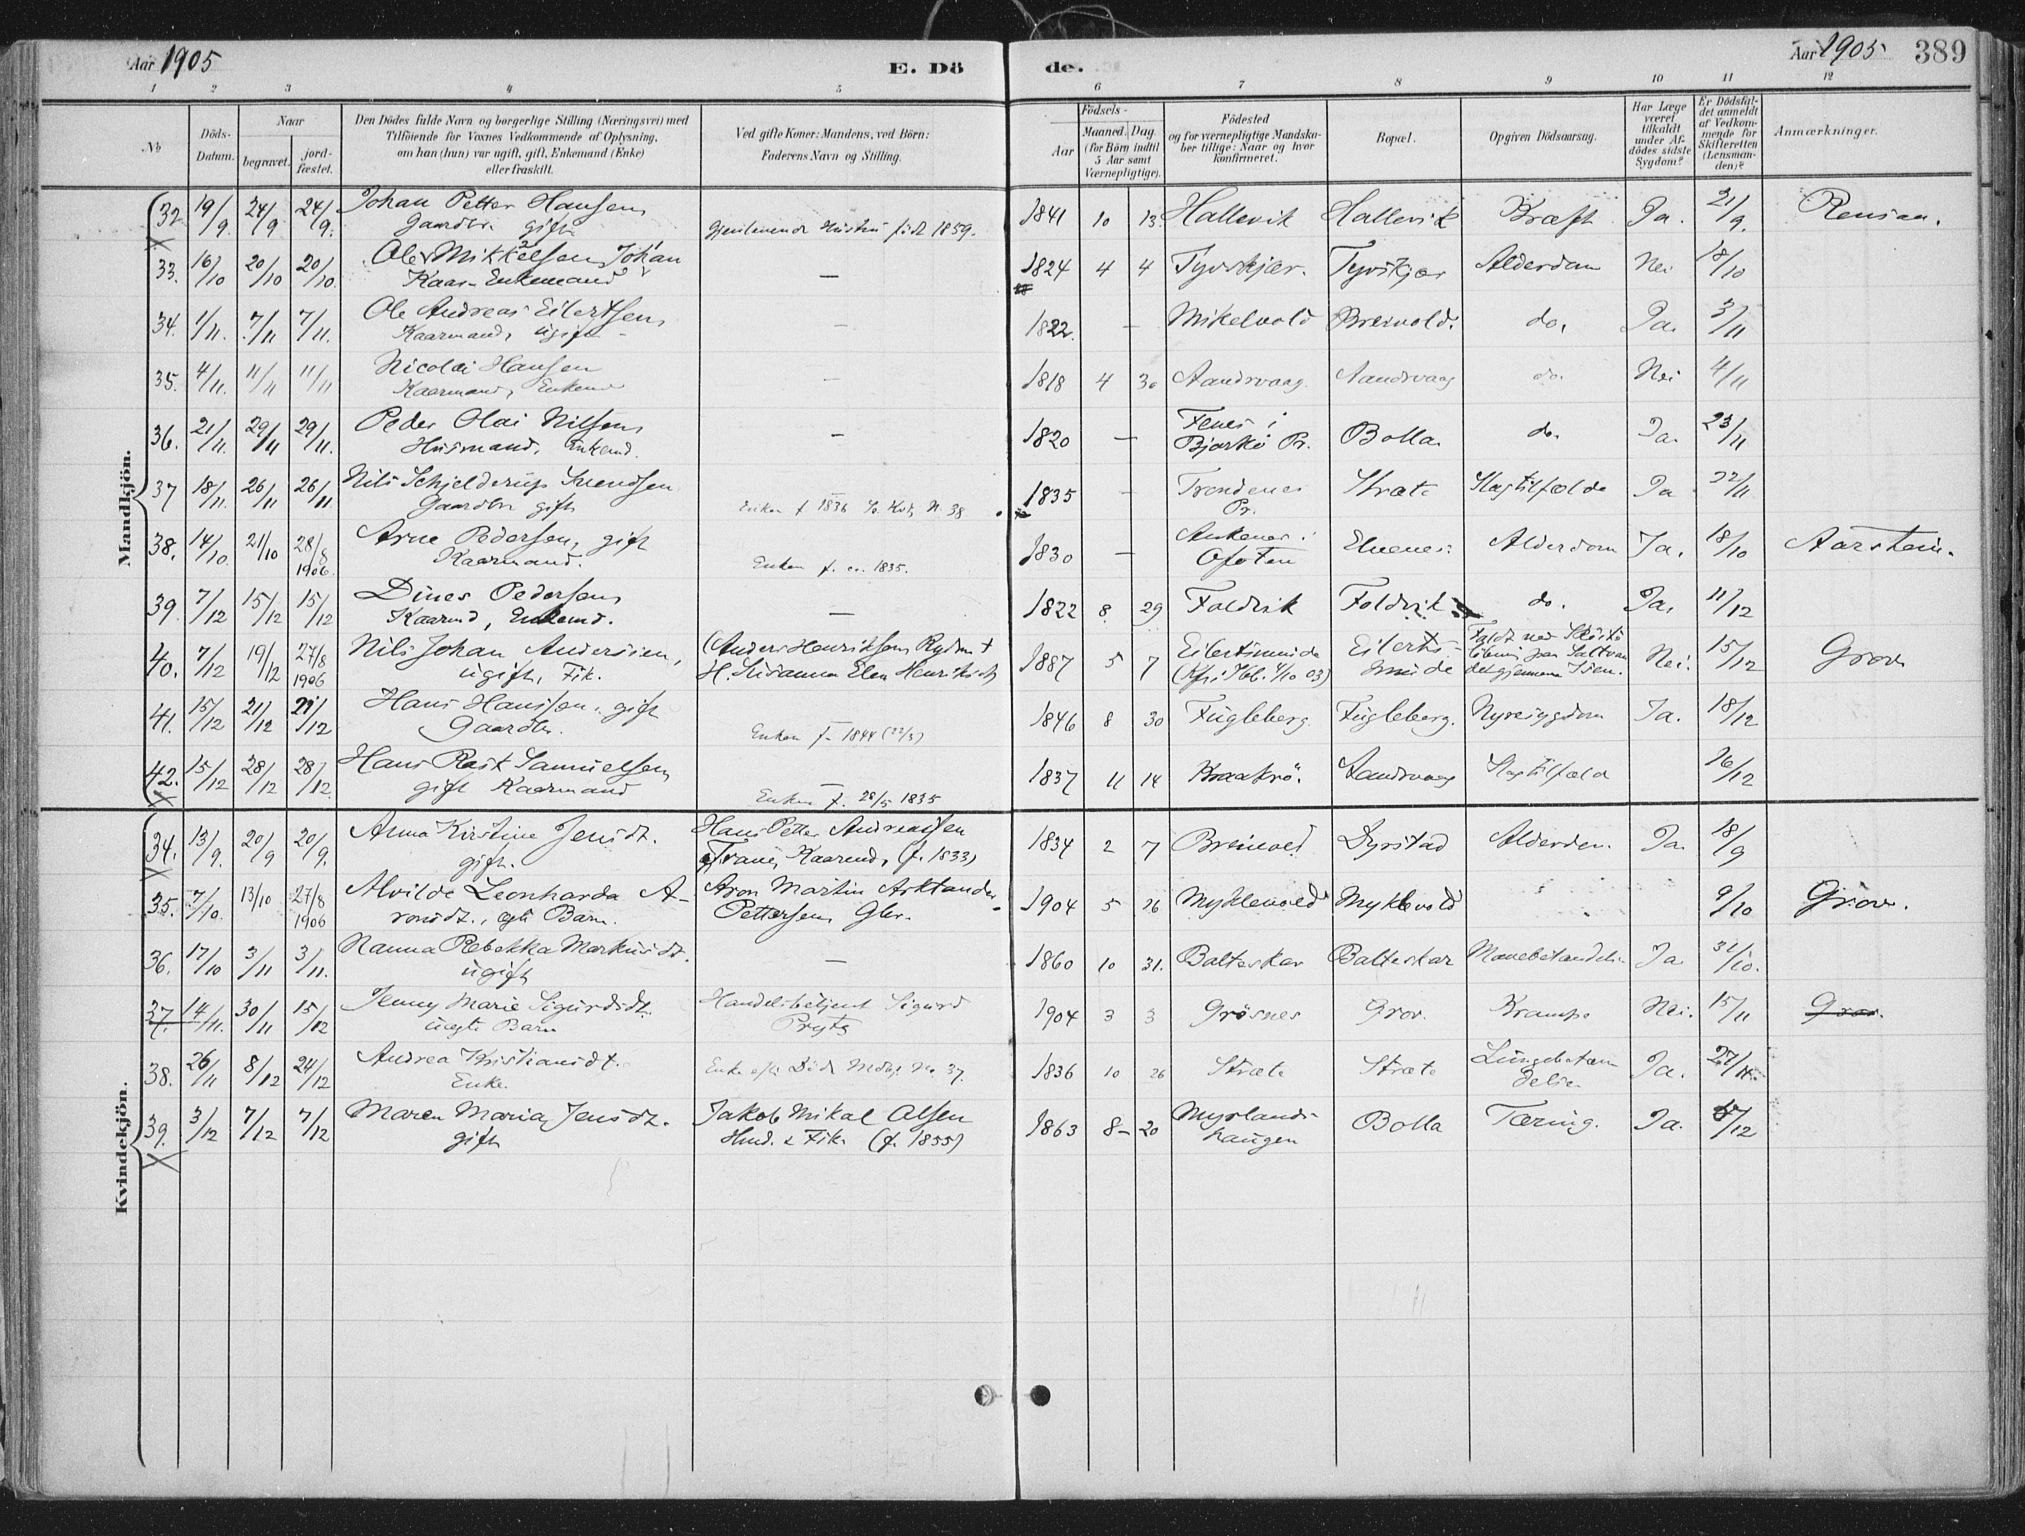 Aar 1905
E. Dö
de.
Aar 1905
389
1 2 3 4 5 6 7 8 9 10 11 12
No
Döds-
Datum.
Naar
begravet.
jord-
fæstet.
Den Dödes fulde Navn og borgerlige Stilling (Næringsvei) med
Tilföiende for Voxnes Vedkommende af Oplysning,
om han (hun) var ugift, gift, Enkemand (Enke)
eller fraskilt.
Ved gifte Koner: Mandens, ved Börn:
Faderens Navn og Stilling.
Födsels-
Aar
Maaned. Dag
(for Börn indtil
5 Aar samt
Værnepligtige).
Födested
og for værnepligtige Mandska-
ber tillige: Naar og hvor
konfirmeret.
Bopæl.
Opgiven Dödsaarsag.
Har Læge
været
tilkaldt
under Af-
dödes sidste
Sygdom?
Er Dödsfal-
det anmeldt
af Vedkom-
mende for
Skifteretten
(Lensman-
den)?
Anmærkninger.
Mandkjön.
32 19/9 24/9 24/9 Johan Petter Hansen
Gaardbr. gift Gjenlevende Hustru födt 1859. 1841 10 13 Hallevik Hallevik Kræft Ja. 21/9. Rensaa.
33. 16/10 20/10 20/10 Ole Mikkelsen Johan
Kaar- Enkemand — 1824 4 4 Tyvskjær. Tyvskjær Alderdom Nei 18/10
34. 1/11. 7/11 7/11. Ole Andreas Eilertsen,
Kaarmand, ugift - — 1822. — Mikelvold Breivold. do. Ja. 3/11
35. 4/11. 11/11 11/11 Nicolai Hansen
Kaarmand, Enkem — 1818 4 30 Aandsvaag. Aandsvaag do. Nei 4/11
36. 21/11. 29/11 29/11. Peder Olai Nilsen,
Husmand, Enkemd. — 1820 — Fenes i
Bjarkö Pr. Bolla do. Ja. 23/11
37 18/11. 26/11 26/11 Nils Schjelderup Svendsen
Gaardbr gift Enken f 1836 No. 38 1835 — Trondenes
Pr. Stræte Slagtilfælde Ja 22/11.
38. 14/10. 21/10 28/8
1906. Arne Pedersen, gift
Kaarmand. Enken f. ca. 1835. 1830 — Ankenes i
Ofoten Elvenes. Alderdom Ja. 18/10 Aarstein.
39. 7/12 15/12 15/12 Dines Pedersen,
Kaarmd, Enkemd. — 1822 8 29 Foldvik Foldvik do. Ja. 11/12
40. 7/12 19/12 27/8
1906 Nils Johan Andersen,
ugift, Fisk. (Anders Henriksen Rydm. +
H. Susanna Elen Henriksdt) 1887 5 7 Eilertsmide
(Kfr. i Kbl. 4/10 03) Eilerts-
smide Nei. 15/12 Grov
41. 15/12 21/12 21/12 Hans Hansen. gift
Gaardbr. Enken f. 1844 (22/3) 1846 8 30 Fugleberg. Fugleberg. Nyresygdom Ja. 18/12
42. 15/12 28/12 28/12. Hans Rask Samuelsen,
gift Kaarmand Enken f. 28/5 1835 1837 11 14 Kraakrö. Sandsvaag Slagtilfæld 16/12
Kvindekjön.
34. 13/9. 20/9 20/9. Anna Kirstine Jensdt.
gift. Hans Petter Andreassen
Kaarmd. (f. 1833) 1834 2 7 Breivold Dyrstad Alderdom. Ja. 18/9
35. 7/10. 13/10 27/8
1906 Alvilde Leonharda A-
ronsdt., egte Barn. Aron Martin Arktander
Pettersen Gbr. 1904 5 26 Myklevold Myklevold 9/10 Grov.
36. 17/10 3/11 3/11. Nanna Rebekka Markusdt.
ugift — 1860 10 31. Balteskar Balteskar Mavebetændelse Ja 31/10.
37. 14/11. 30/11 15/12 Jenny Marie Sigurdsdt.
uegte Barn Handelsbetjent Sigurd
Prytz 1904 3 3 Grösnes Grov. Krampe Nei. 15/11 Grov.
38. 26/11 8/12 24/12 Andrea Kristiansdt.
Enke. Enke efter Död Mdkj. No. 37. 1836 10 26 Stræte Stræte Lungebetæn
delse Ja. 27/11.
39. 3/12 7/12 7/12 Maren Maria Jensdt.
gift Jakob Mikal Olsen
Husmd. & Fisk. (f. 1855) 1863 8- 20 Myrlands-
haugen Bolla Tæring. Ja. /12